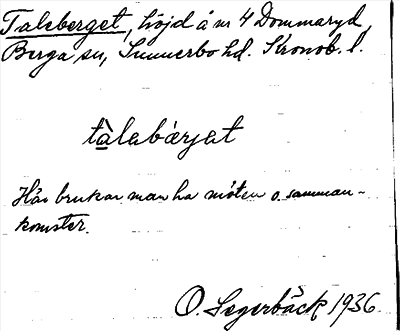 Taleberget, höjd å nr 4 Dommaryd,
Berga sn, Sunnerbo hd. Kronob. l.
tàlabærjat
Här brukar man ha möten o. samman-
komster.
O. Segerbäck 1936.